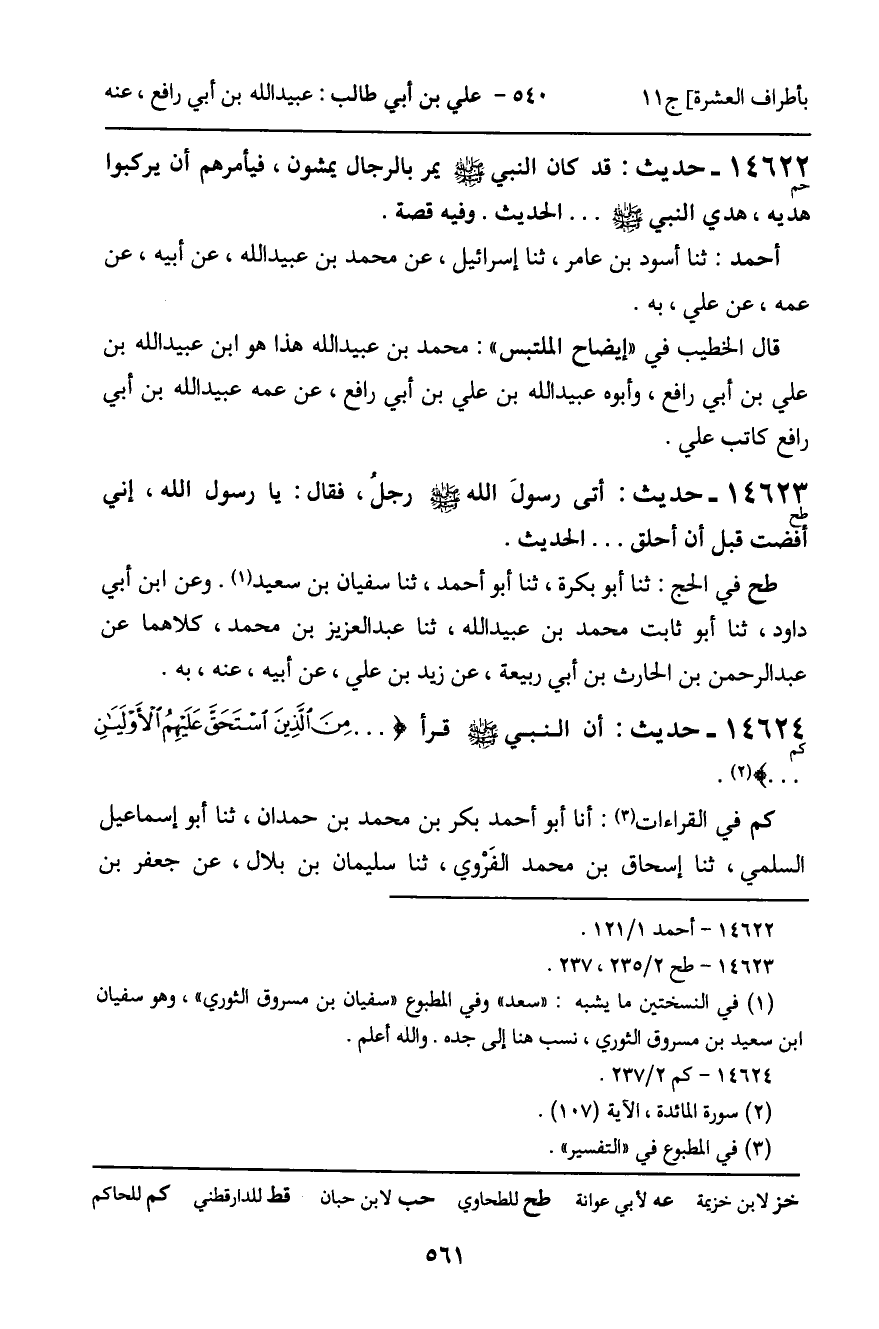 بأطراف العشرة] ج١١ ٥٤٠ – علي بن أبي طالب : عبيدالله بن أبي رافع ، عنه
١٤٦٢٢ ـ حديث : قد كان النبي ﷺ يمر بالرجال يمشون ، فيأمرهم أن يركبوا
حم
هديه ، هدي النبي ﷺ ... الحديث . وفيه قصة .
أحمد : ثنا أسود بن عامر ، ثنا إسرائيل ، عن محمد بن عبيدالله ، عن أبيه ، عن
عمه ، عن علي ، به .
قال الخطيب في «إيضاح الملتبس» : محمد بن عبيدالله هذا هو ابن عبيدالله بن
علي بن أبي رافع ، وأبوه عبيدالله بن علي بن أبي رافع ، عن عمه عبيدالله بن أبي
رافع كاتب علي .
١٤٦٢٣ ـ حديث : أتى رسولَ الله ﷺ رجلُ ، فقال : يا رسول الله ، إني
طح
أفضت قبل أن أحلق ... الحديث .
طح في الحج : ثنا أبو بكرة ، ثنا أبو أحمد ، ثنا سفيان بن سعيد(١) . وعن ابن أبي
داود ، ثنا أبو ثابت محمد بن عبيدالله ، ثنا عبدالعزيز بن محمد ، كلاهما عن
عبدالرحمن بن الحارث بن أبي ربيعة ، عن زيد بن علي ، عن أبيه ، عنه ، به .
١٤٦٢٤ ـ حديث : أن النبي ﷺ قرأ ﴿ ... مِنَ ٱلَّذِينَ ٱسْتَحَقَّ عَلَيْهِمُ ٱلْأَوْلَيَـٰنِ
كم
...﴾(٢) .
كم في القراءات(٣) : أنا أبو أحمد بكر بن محمد بن حمدان ، ثنا أبو إسماعيل
السلمي ، ثنا إسحاق بن محمد الفَرْوي ، ثنا سليمان بن بلال ، عن جعفر بن
١٤٦٢٢ – أحمد ١/ ١٢١ .
١٤٦٢٣ – طح ٢/ ٢٣٥ ، ٢٣٧ .
(١) في النسختين ما يشبه : «سعد» وفي المطبوع «سفيان بن مسروق الثوري» ، وهو سفيان
ابن سعيد بن مسروق الثوري ، نسب هنا إلى جده . والله أعلم .
١٤٦٢٤ – كم ٢/ ٢٣٧ .
(٢) سورة المائدة ، الآية (١٠٧) .
(٣) في المطبوع في «التفسير» .
خز لابن خزيمة عه لأبي عوانة طح للطحاوي حب لابن حبان قط للدارقطني كم للحاكم
٥٦١